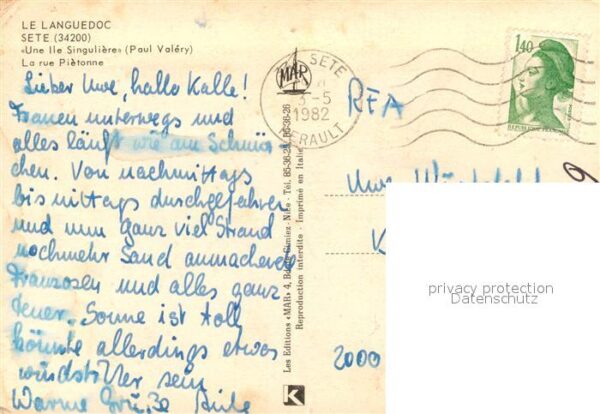 LE LANGUEDOC
SETE (34200)
«Une Ile Singulière» (Paul Valéry)
La rue Piètonne
Lieber Uwe, hallo Kalle!
Frauen unterwegs und
alles läuft wie am Schnür-
chen. Von nachmittags
bis mittags durchgefahren
und nun ganz viel Strand
nochmehr Sand anmachende
Franzosen und alles ganz
teuer. Sonne ist toll
könnte allerdings etwas
windstiller sein
Warme Grüße
MAR
SETE
3-5
1982
HERAULT
1,40
REPUBLIQUE FRANÇAISE
RFA
Uwe
K
2000
Les Editions «MAR» 4, Bd de Cimiez - Nice - Tél. 85-36-25, 85-36-26
Reproduction interdite - Imprimé en Italie
K
privacy protection
Datenschutz